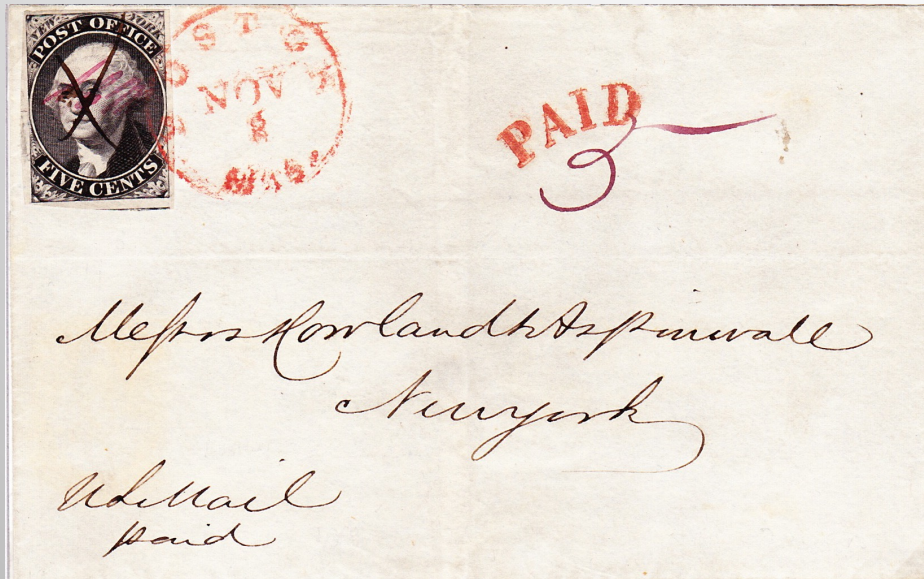 NEW YORK
POST OFFICE
FIVE CENTS
BOSTON
NOV
8
MASS.
PAID
5
Messrs Howland & Aspinwall
New York
U S Mail
paid